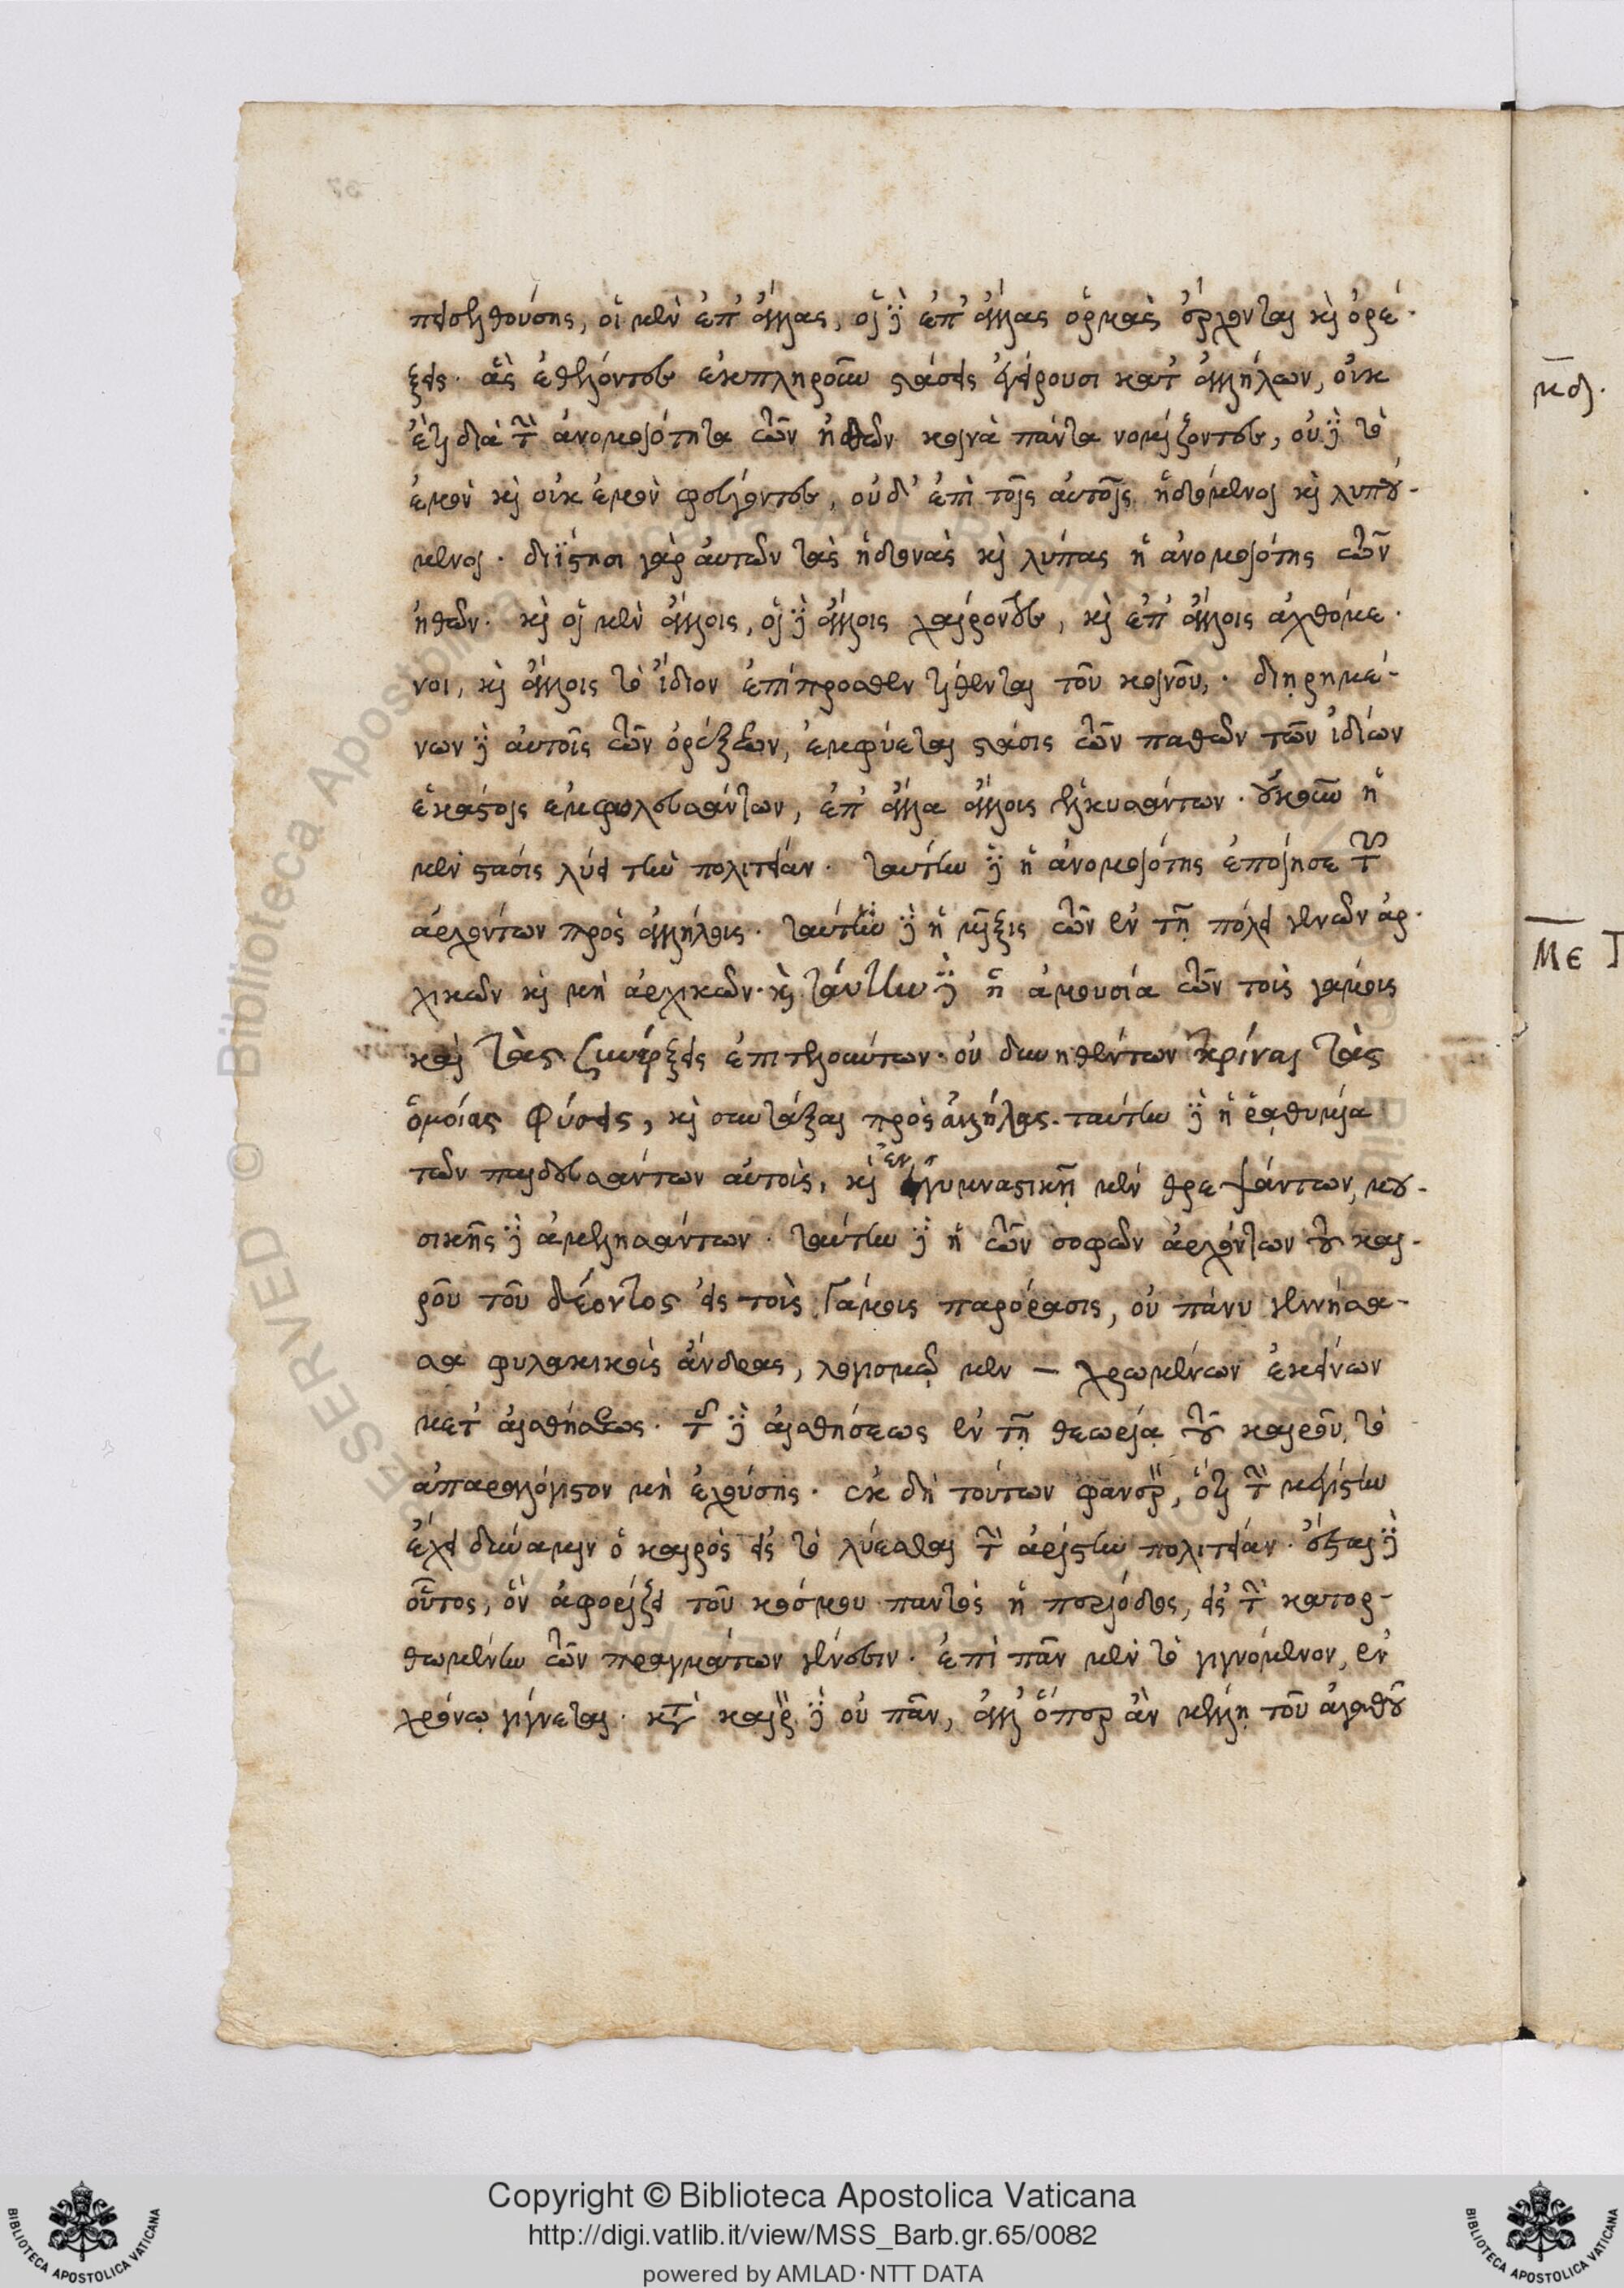 πεισελθούσης, οἱ μὲν ἐπ' ἄλλας, οἱ δὲ ἐπ' ἄλλας ὁρμὰς ἔρχονται καὶ ὀρέ-
ξεις. ἃς ἐθέλοντες ἐκπληροῦν στάσεις ἐγείρουσι κατ' ἀλλήλων, οὐκ
ἔτι διὰ τὴν ἀνομοιότητα τῶν ἠθῶν κοινὰ πάντα νομίζοντες, οὐδὲ τὸ
ἐμὸν καὶ οὐκ ἐμὸν φθέγγοντες, οὐδ' ἐπὶ τοῖς αὐτοῖς ἡδόμενοι καὶ λυπού-
μενοι. διΐστησι γὰρ αὐτῶν τὰς ἡδονὰς καὶ λύπας ἡ ἀνομοιότης τῶν
ἠθῶν. καὶ οἱ μὲν ἄλλοις, οἱ δὲ ἄλλοις χαίροντες, καὶ ἐπ' ἄλλοις ἀχθόμε-
νοι, καὶ ἄλλοις τὸ ἴδιον ἐπίπροσθεν τίθενται τοῦ κοινοῦ. διῃρημέ-
νων δὲ αὐτοῖς τῶν ὀρέξεων, ἐκφύεται στάσις τῶν παθῶν τῶν ἰδίων
ἑκάστοις ἐκμοχλευσάντων, ἐπ' ἄλλα ἄλλοις ἑλκυσάντων. οὐκοῦν ἡ
μὲν στάσις λύει τὴν πολιτείαν. ταύτην δὲ ἡ ἀνομοιότης ἐποίησε τῶν
ἀρχόντων πρὸς ἀλλήλους. ταύτην δὲ ἡ μῖξις τῶν ἐν τῇ πόλει γενῶν ἀρ-
χικῶν καὶ μὴ ἀρχικῶν. καὶ ταύτην δὲ ἡ ἀμουσία τῶν τοῖς γάμοις
καὶ τὰς συνέρξεις ἐπιτελούντων. οὐ δυνηθέντων κρίναι τὰς
ὁμοίας φύσεις, καὶ συντάξαι πρὸς ἀλλήλας. ταύτην δὲ ἡ ῥᾳθυμία
τῶν παιδευσάντων αὐτοὺς, καὶ ἐν γυμναστικῇ μὲν θρεψάντων, μου-
σικῆς δὲ ἀμελησάντων. ταύτην δὲ ἡ τῶν σοφῶν ἀρχόντων τοῦ και-
ροῦ τοῦ δέοντος εἰς τοὺς γάμους παρόρασις, οὐ πάνυ γεννήσα-
σα φυλακικοὺς ἄνδρας, λογισμῷ μὲν — χρωμένων ἐκείνων
μετ' αἰσθήσεως. τῆς δὲ αἰσθήσεως ἐν τῇ θεωρίᾳ τοῦ καιροῦ, τὸ
ἀπαραλόγιστον μὴ ἐχούσης. ἐκ δὴ τούτων φανερὸν, ὅτι τὴν μεγίστην
ἔχει δύναμιν ὁ καιρὸς εἰς τὸ λύεσθαι τὴν ἀρίστην πολιτείαν. ἔσται δὲ
οὗτος, ὃν ἀφορίζει τοῦ κόσμου παντὸς ἡ περίοδος, εἰς τὴν κατορ-
θωμένην τῶν πραγμάτων γένεσιν. ἐπὶ πᾶν μὲν τὸ γιγνόμενον, ἐν
χρόνῳ γίγνεται. κατὰ καιρὸν δὲ οὐ πᾶν, ἀλλ' ὅπερ ἂν μέλλῃ τοῦ ἀγαθοῦ
κδ.
ΜΕ
Copyright © Biblioteca Apostolica Vaticana
http://digi.vatlib.it/view/MSS_Barb.gr.65/0082
powered by AMLAD·NTT DATA